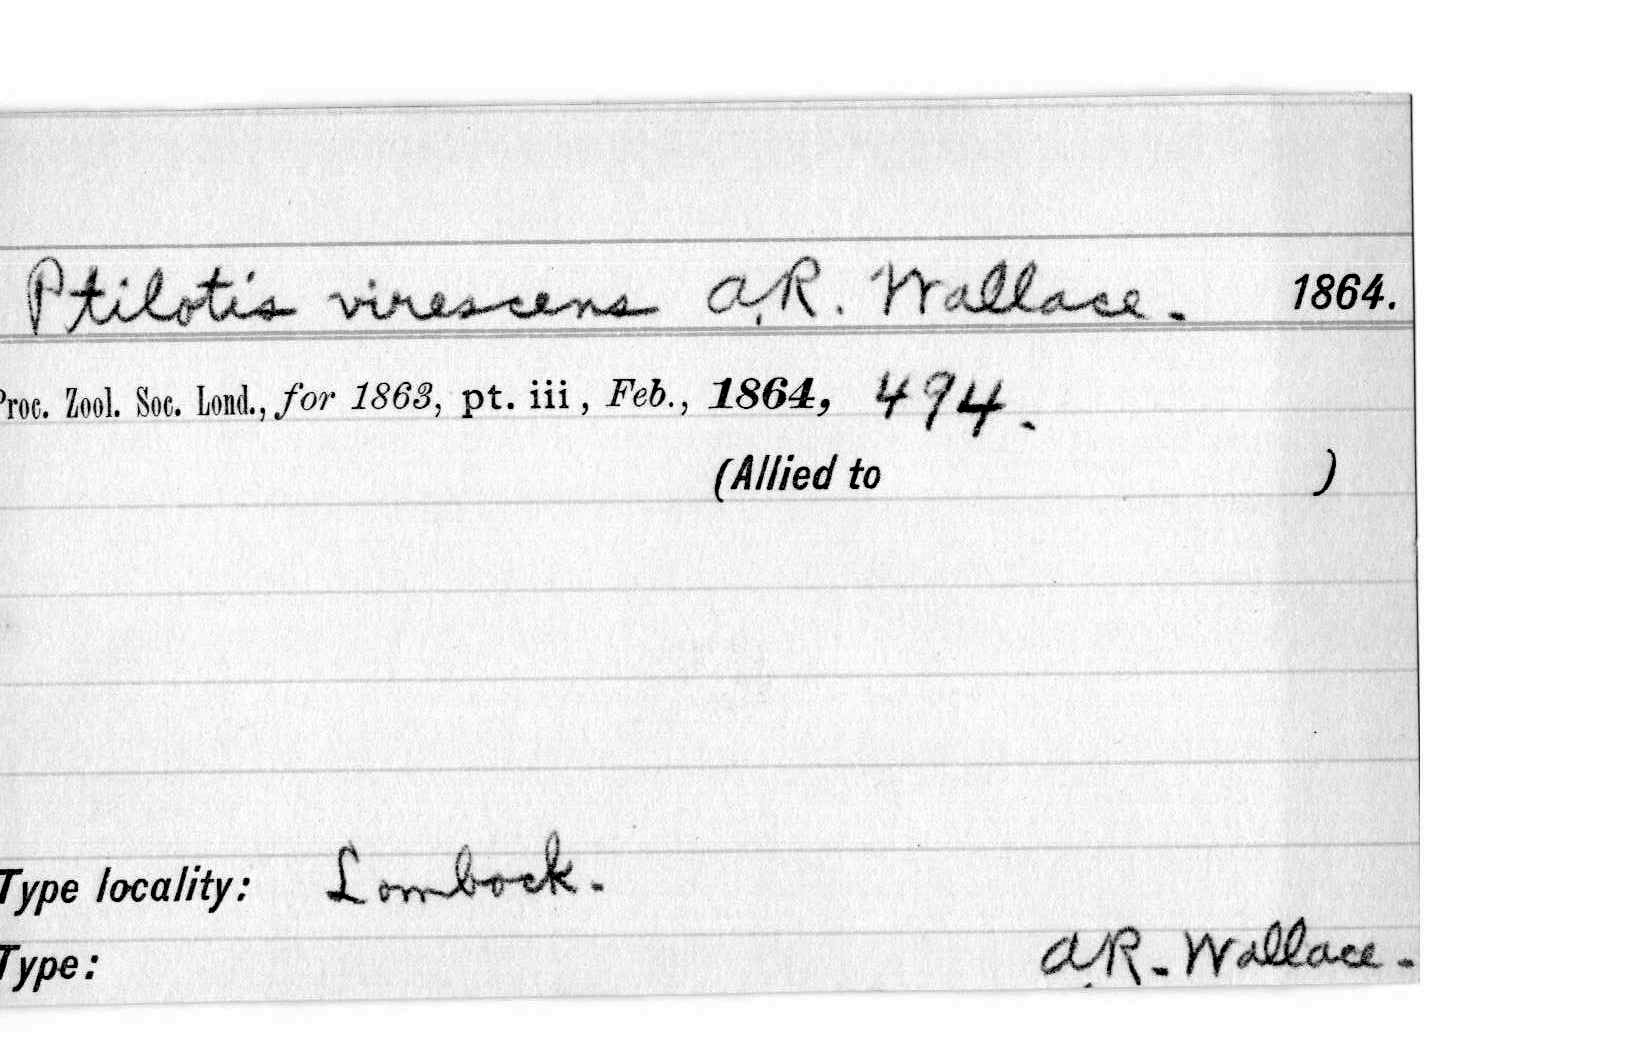 Ptilotis virescens A.R. Wallace. 1864.
Proc. Zool. Soc. Lond., for 1863, pt. iii, Feb., 1864, 494.
(Allied to )
Type locality: Lombock.
Type: A.R. Wallace.